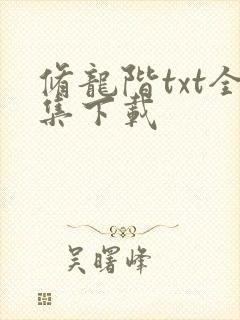 脩龍階txt全
集下載
吴曙峰